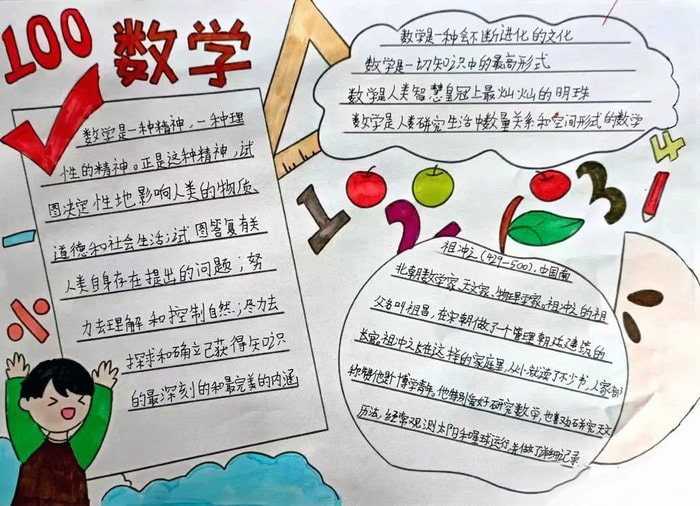 100
数学
数学是一种精神,一种理
性的精神。正是这种精神,试
图决定性地影响人类的物质
道德和社会生活;试图答复有关
人类自身存在提出的问题;努
力去理解和控制自然;尽力去
探求和确立已获得知识
的最深刻的和最完美的内涵
数学是一种会不断进化的文化
数学是一切知识中的最高形式
数学是人类智慧皇冠上最灿灿的明珠
数学是人类研究生活中数量关系和空间形式的数学
1 2 3 4
祖冲之(429-500),中国南
北朝数学家、天文家、物理学家。祖冲之的祖
父名叫祖昌,在宋朝做了一个管理朝廷建筑的
长官。祖冲之长在这样的家庭里,从小就读了不少书,人家都
称赞他是个博学青年。他特别爱好研究数学,也喜欢研究天文
历法,经常观测太阳和星球运行,并做了详细记录